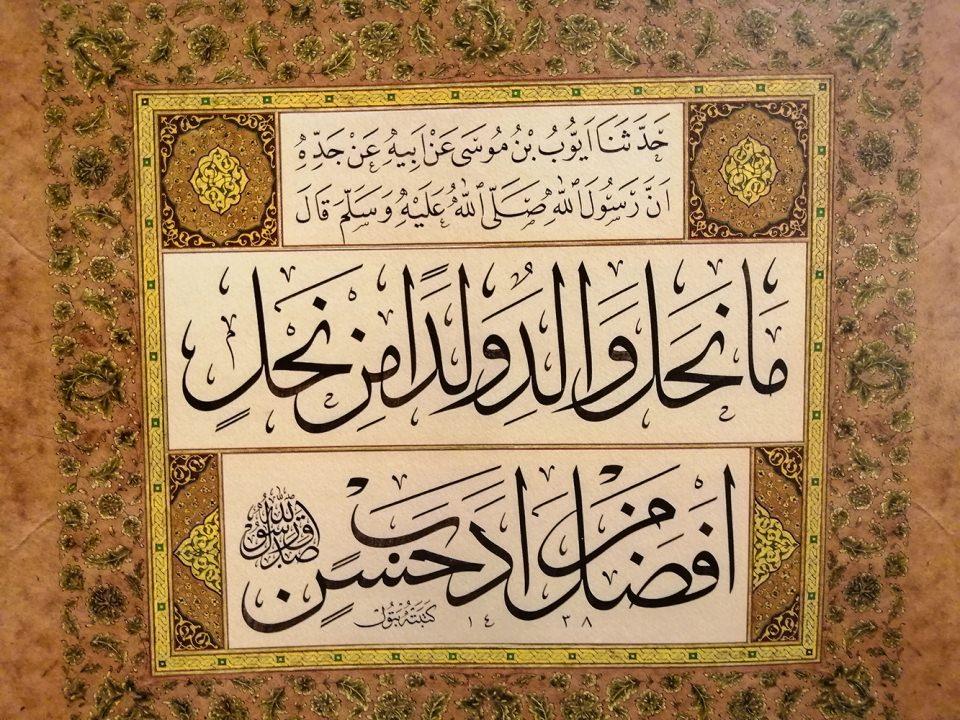 حَدَّثَنَا اَيُّوبُ بْنُ مُوسَى عَنْ اَبِيهِ عَنْ جَدِّهِ
اَنَّ رَسُولَ اللهِ صَلَّى اللهُ عَلَيْهِ وَسَلَّمَ قَالَ
مَا نَحَلَ وَالِدٌ وَلَدًا مِنْ نَحْلٍ
اَفْضَلَ مِنْ اَدَبٍ حَسَنٍ
صدق رسول الله
كَتَبَتْهُ بَتُول ١٤٣٨